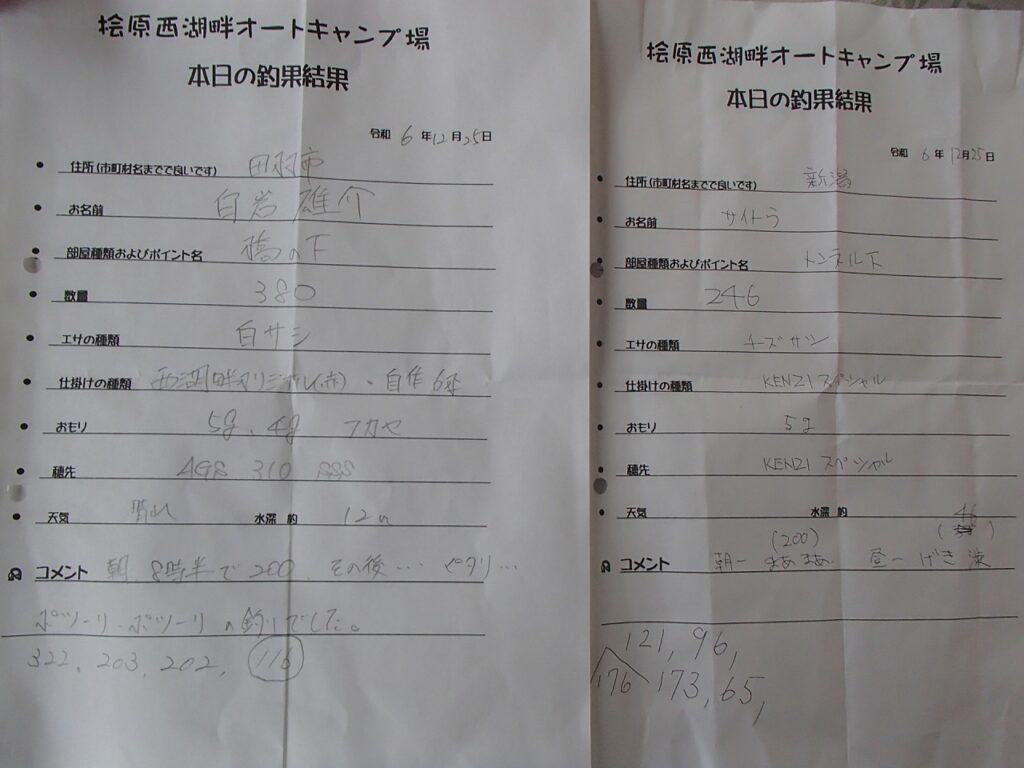 桧原西湖畔オートキャンプ場
本日の釣果結果
令和 6 年 12 月 25 日
住所(市町材名までで良いです)
お名前 白岩 雄介
部屋種類およびポイント名 橋の下
数量 380
エサの種類 白サシ
仕掛けの種類 西湖畔オリジナル(赤)・自作6本
おもり 5g、4g フカセ
穂先 AGS 310 SSS
天気 晴れ 水深 約 12m
コメント 朝 8時半で200、その後… ピタリ…
ポツーリ・ポツーリの釣りでした。
322, 203, 202, 116
桧原西湖畔オートキャンプ場
本日の釣果結果
令和 6 年 12月 25日
住所(市町材名までで良いです) 新潟
お名前 サイトウ
部屋種類およびポイント名 トンネル下
数量 246
エサの種類 チーズサシ
仕掛けの種類 KENZIスペシャル
おもり 5g
穂先 KENZI スペシャル
天気 水深 約
コメント 朝一 まあまあ(200) 昼一 げき渋 (46)
121, 96,
176 173, 65,